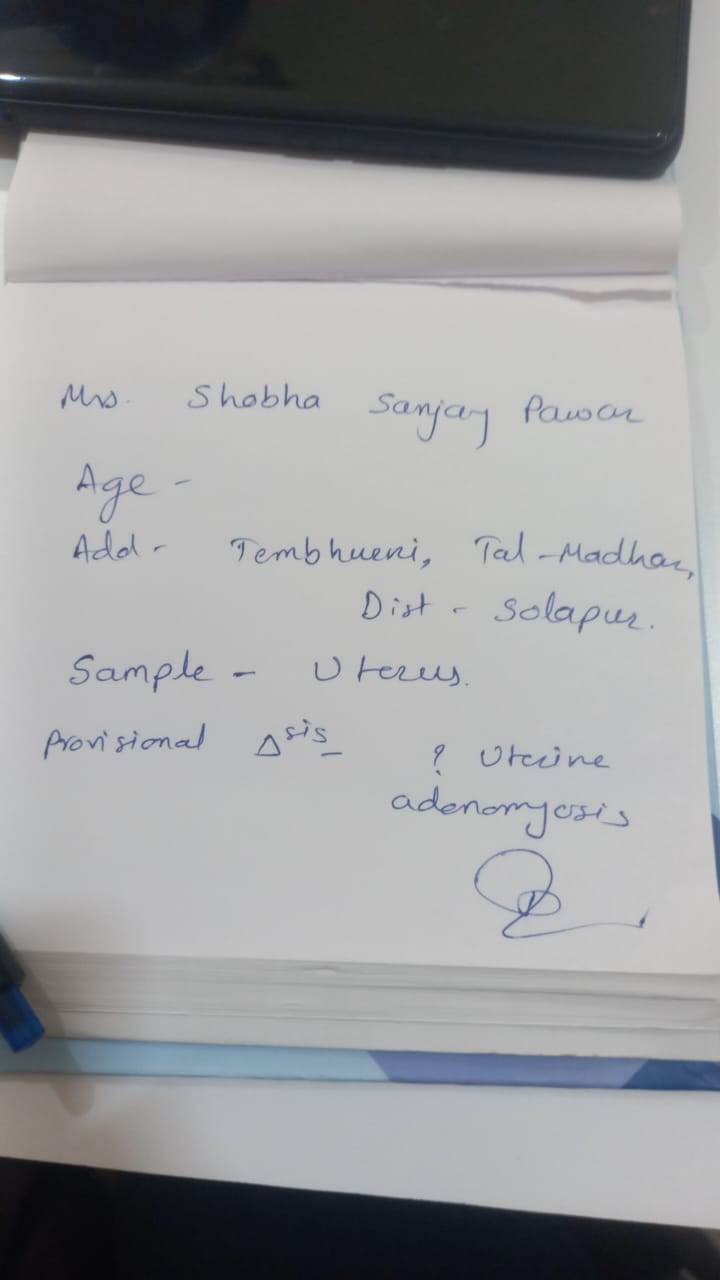 Mrs. Shobha Sanjay Pawar
Age -
Add - Tembhurni, Tal - Madha,
Dist - Solapur.
Sample - Uterus.
Provisional Δsis -
? Uterine
adenomyosis